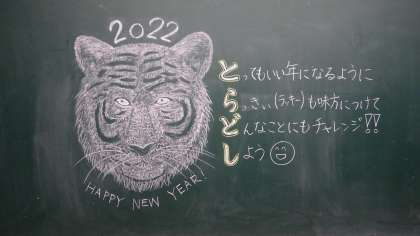 2022
HAPPY NEW YEAR!
とってもいい年になるように
らっきぃ(ラッキー)も味方につけて
どんなことにもチャレンジ!!
しよう